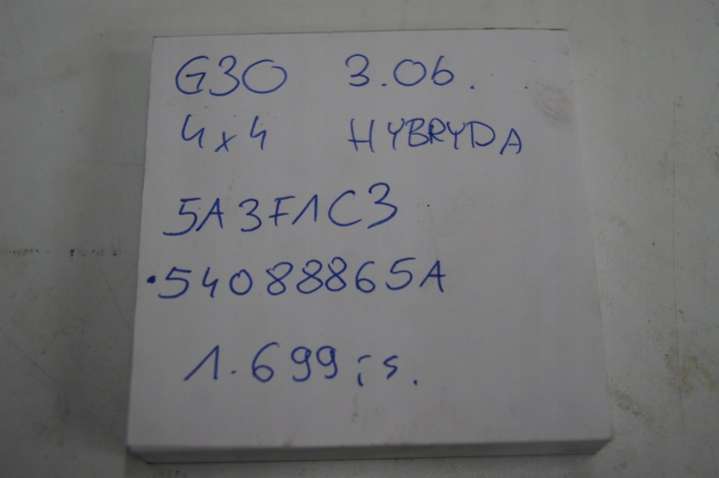 G30 3.0b.
4x4 HYBRYDA
5A3F1C3
54088865A
1.699 is.